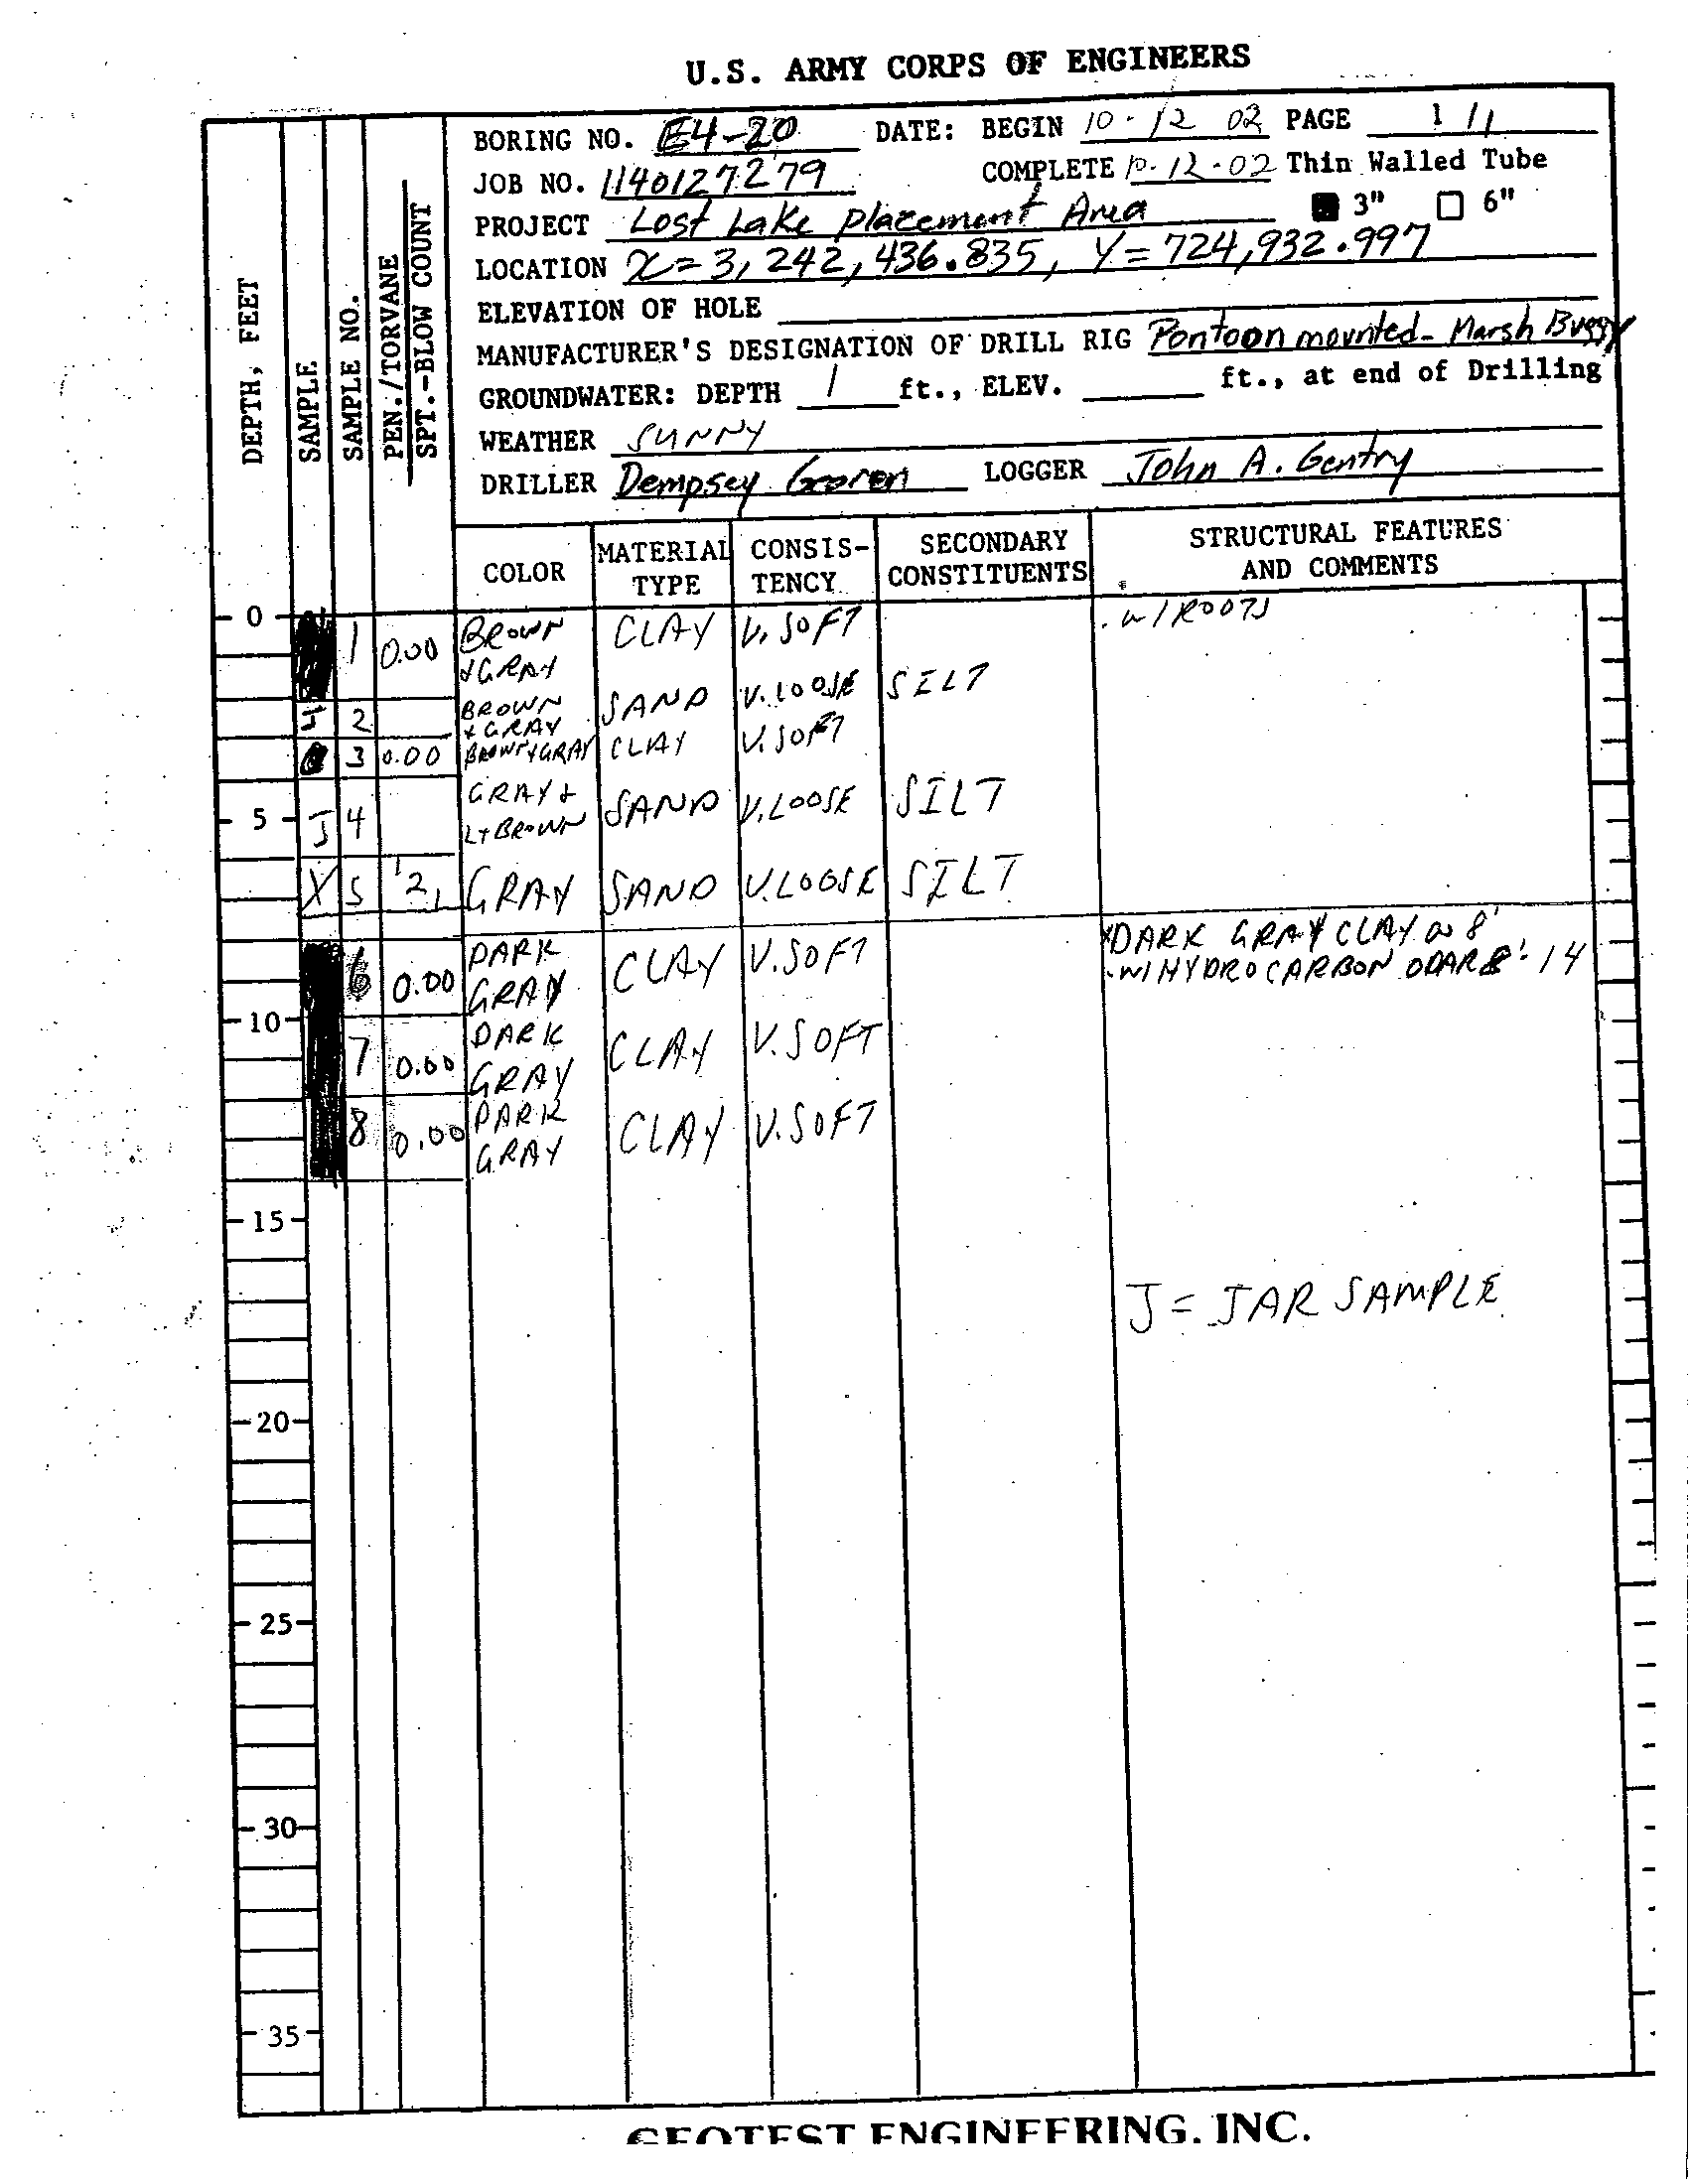 U.S. ARMY CORPS OF ENGINEERS
BORING NO. E4-20 DATE: BEGIN 10-12 02 PAGE 1/1
JOB NO. 1140127279 COMPLETE 10-12-02 Thin Walled Tube
PROJECT Lost Lake Placement Area 3" 6"
LOCATION X=3,242,436.835, Y=724,932.997
ELEVATION OF HOLE
MANUFACTURER'S DESIGNATION OF DRILL RIG Pontoon mounted- Marsh Buggy
GROUNDWATER: DEPTH 1 ft., ELEV. ft., at end of Drilling
WEATHER SUNNY
DRILLER Dempsey LOGGER John A. Gentry
DEPTH, FEET
SAMPLE
SAMPLE NO.
PEN./TORVANE
SPT.-BLOW COUNT
COLOR MATERIAL TYPE CONSIS-TENCY SECONDARY CONSTITUENTS STRUCTURAL FEATURES AND COMMENTS
0 1 0.00 BROWN CLAY V. SOFT . W/ROOTS
& GRAY
2 BROWN SAND V.LOOSE SILT
& GRAY
3 0.00 BROWN & GRAY CLAY V. SOFT
GRAY &
5 J 4 LT BROWN SAND V.LOOSE SILT
X 5 1 2 1 GRAY SAND V.LOOSE SILT
DARK GRAY CLAY @ 8'
6 0.00 DARK CLAY V.SOFT -W/HYDROCARBON ODAR 8'-14
GRAY
10 7 0.00 DARK CLAY V.SOFT
GRAY
8 0.00 DARK CLAY V.SOFT
GRAY
15
J = JAR SAMPLE
20
25
30
35
GEOTEST ENGINEERING, INC.